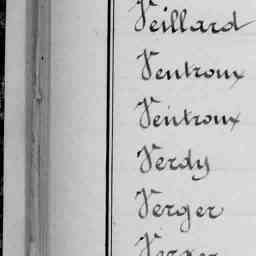 Veillard
Ventroux
Ventroux
Verdy
Verger
Verger